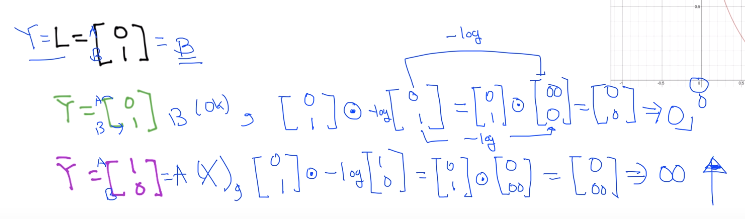 Y = L = A B [0 1] = B
-log
Ȳ = A B [0 1] B (OK), [0 1] ⊙ -log [0 1] = [0 1] ⊙ [∞ 0] = [0 0] ⇒ 0
-log
Ȳ = A B [1 0] = A (X), [0 1] ⊙ -log [1 0] = [0 1] ⊙ [0 ∞] = [0 ∞] ⇒ ∞